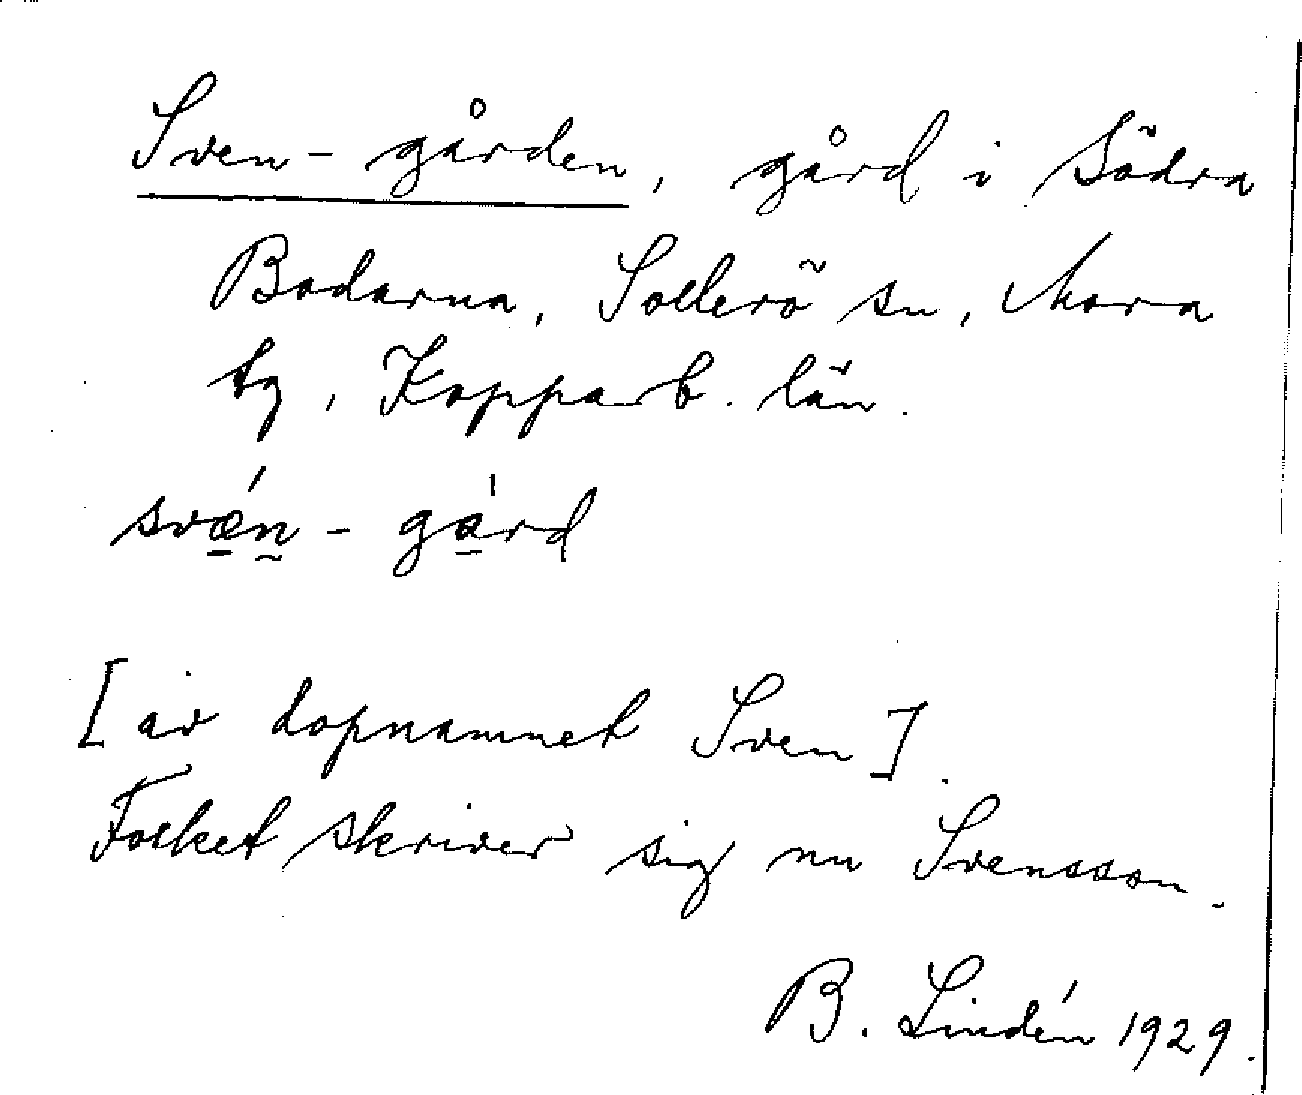 Sven-gården, gård i Södra
Bodarna, Sollerö sn, Mora
tg, Kopparb. län.
svǽ̲n̰ - ga̲̍rd
[av dopnamnet Sven].
Folket skriver sig nu Svensson.
B. Lindén 1929.